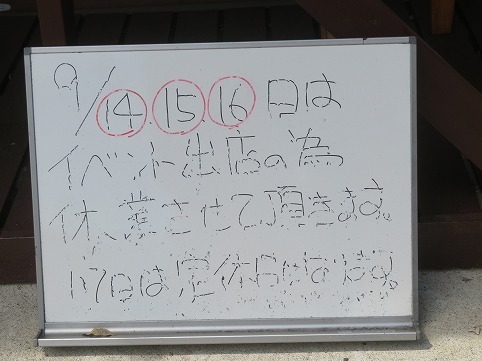 9/14.15.16日は
イベント出店の為
休業させて頂きます。
17日は定休日になります。